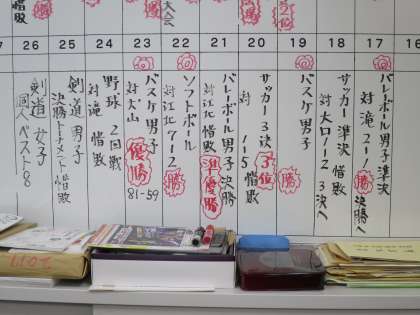 惜敗
大会
17
バレーボール男子 準決
対 滝 2-1 勝 決勝へ
18
サッカー 準決 惜敗
対 大口 1-2 3決へ
19
バスケ男子
勝
20
サッカー 3決 3位
対 1-5 惜敗
21
バレーボール男子 決勝
対 江北 惜敗 準優勝
22
ソフトボール
対 江北 7-2 勝
23
バスケ男子 優勝
対 犬山 81-59
24
野球 2回戦
対 滝 惜敗
25
剣道 男子
決勝トーナメント 惜敗
26
剣道 女子
個人 ベスト8